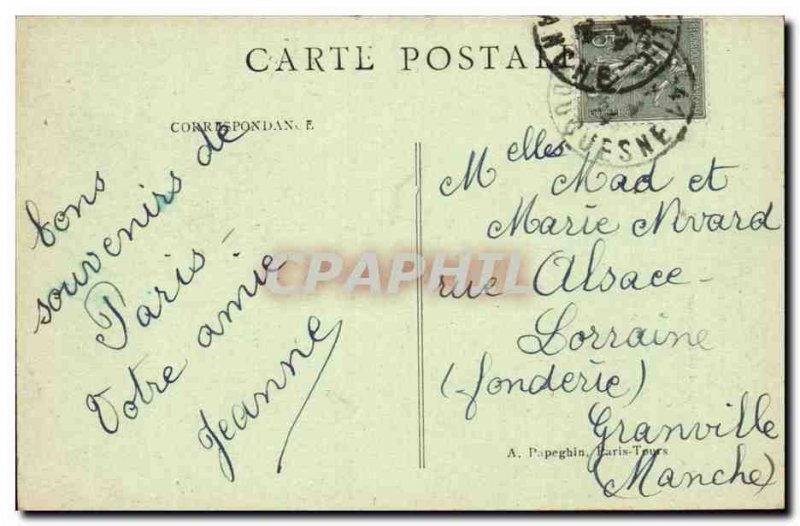 CARTE POSTALE
CORRESPONDANCE
bons
souvenirs de
Paris -
Votre amie
Jeanne
Melles Mad et
Marie Nivard
rue Alsace-
Lorraine
(fonderie)
Granville
(Manche)
A. Papeghin, Paris-Tours
CPAPHIL
15
MANCHE
DUQUESNE